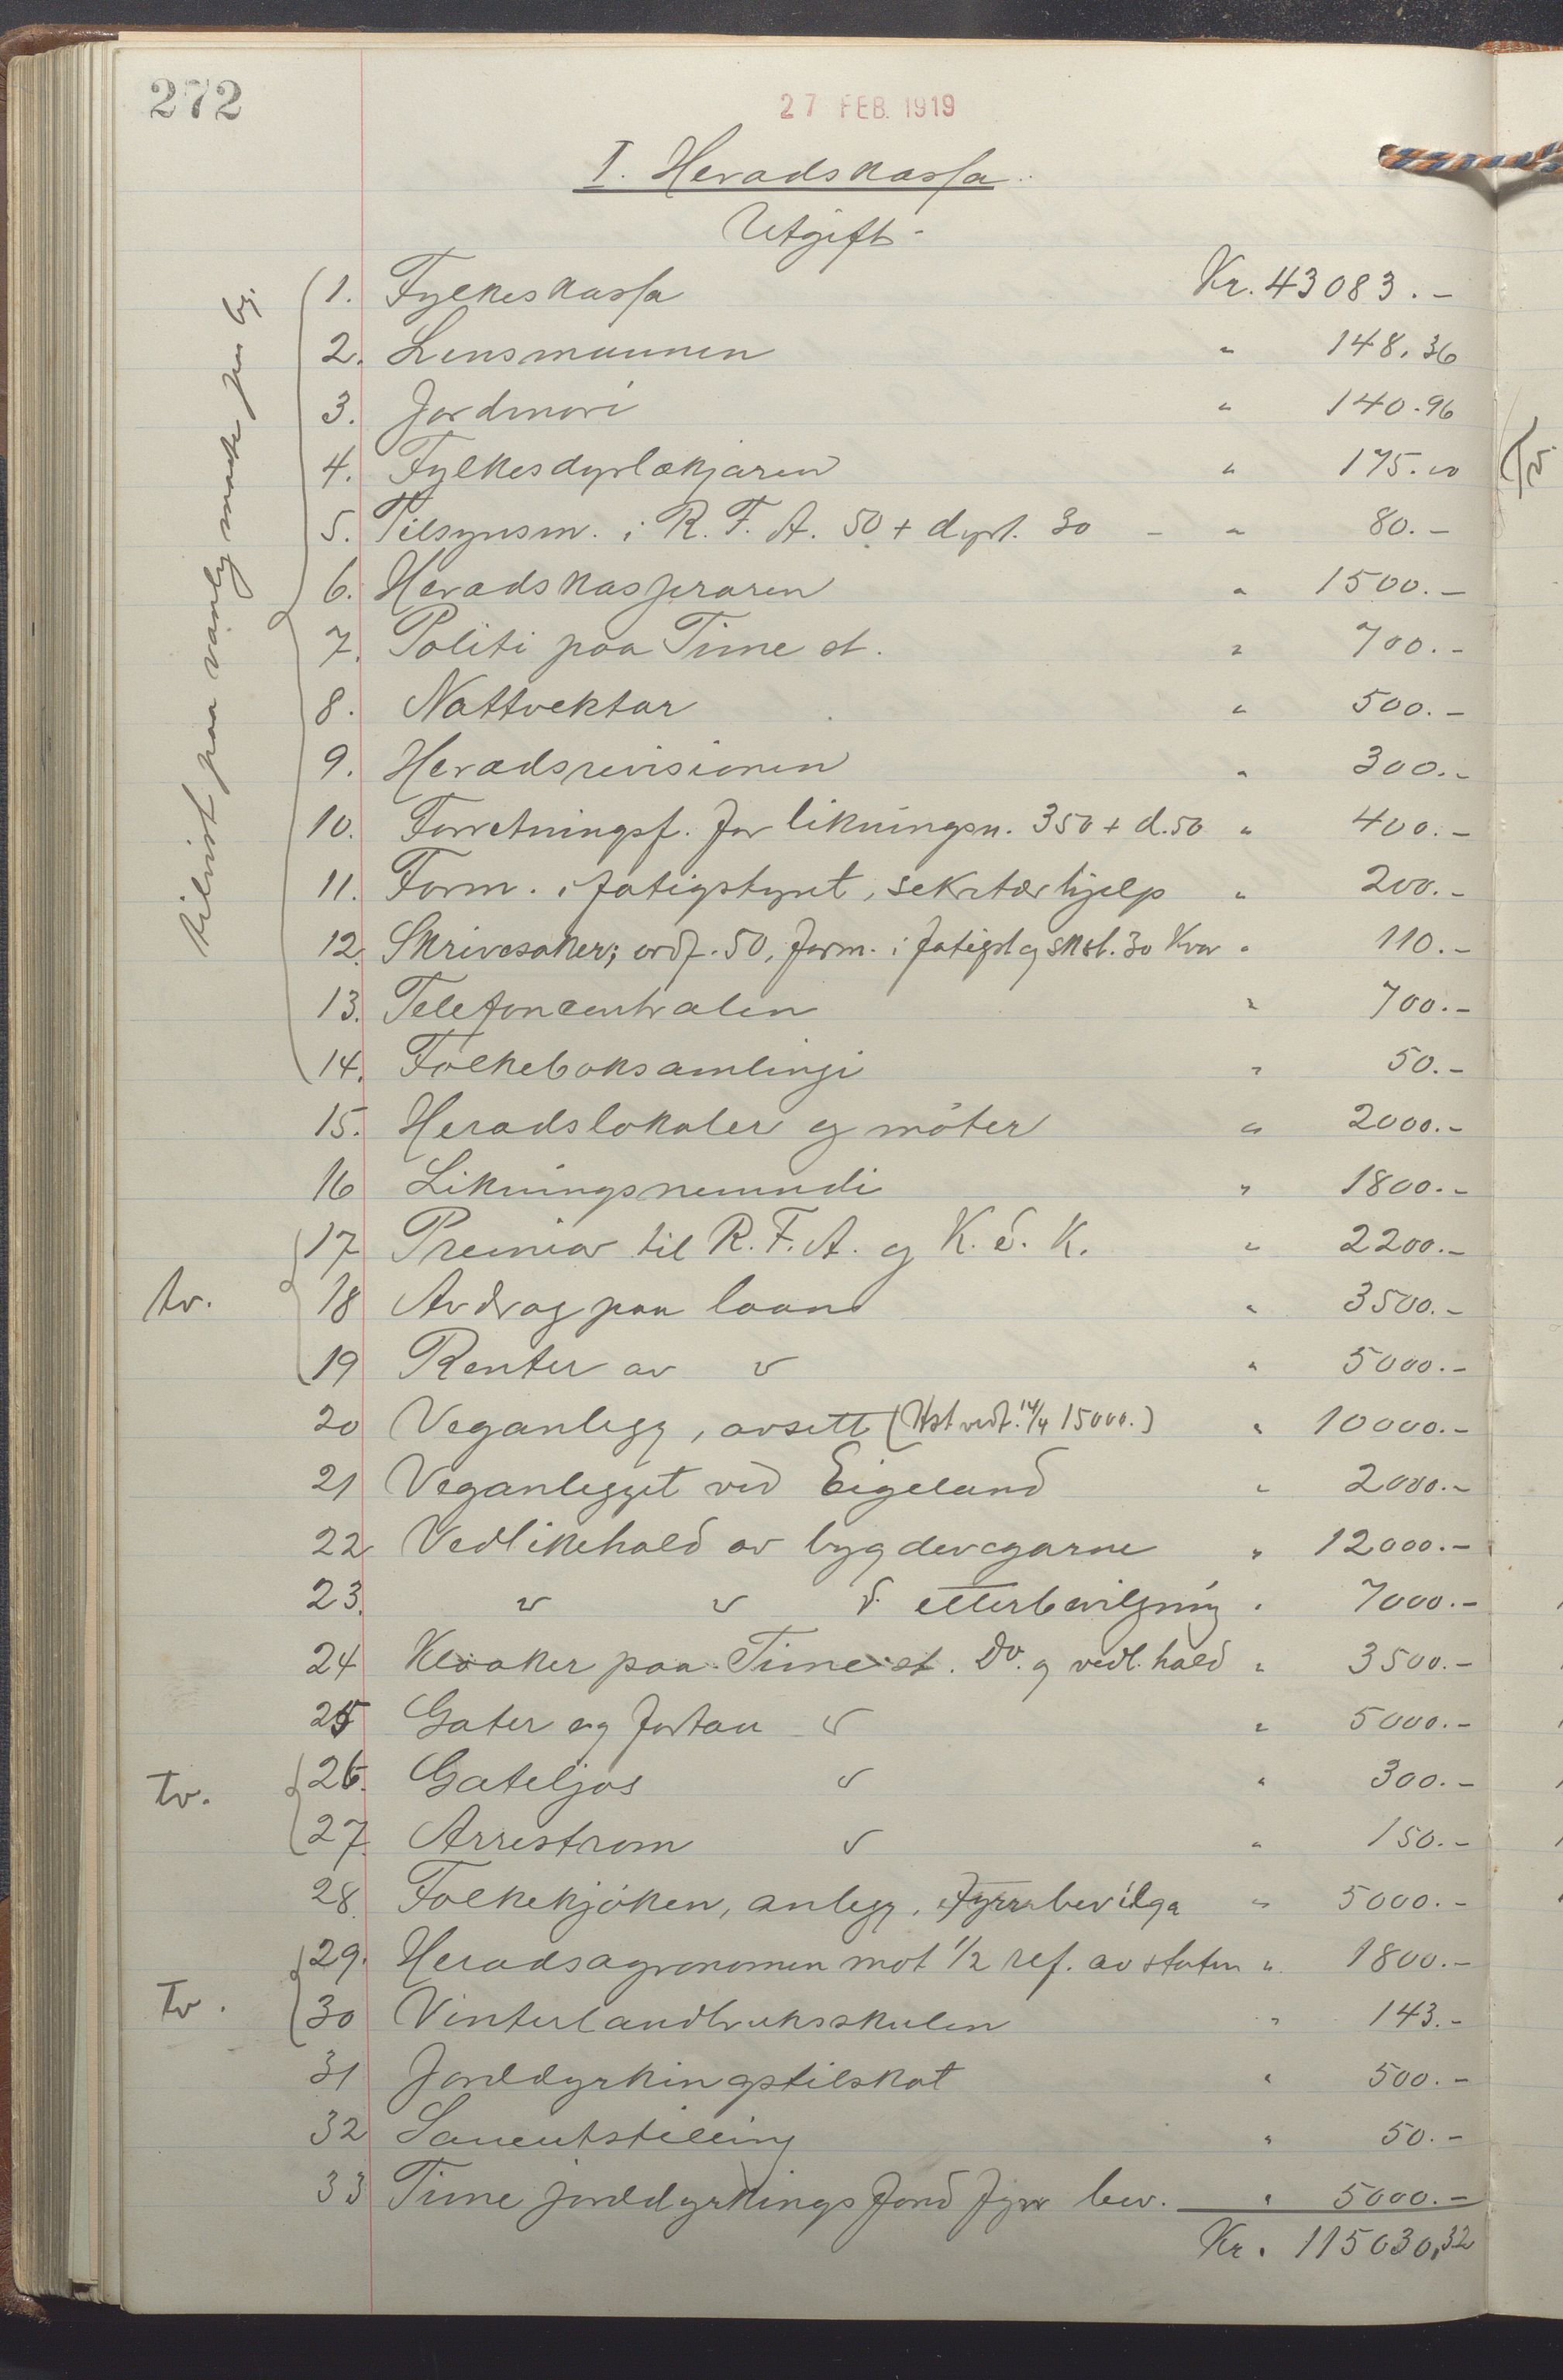 272
27 FEB. 1919
I. Heradskassa.
Utgift
1. Fylkeskassa Kr. 43083.-
2. Lensmannen " 148.36
3. Jordmori " 140.96
4. Fylkesdyrlækjaren " 175.00
5. Tilsynsm. i R. F. A. 50 + dyrt. 30 - " 80.-
6. Heradskasseraren " 1500.-
7. Politi paa Time st. " 700.-
8. Nattvektar " 500.-
9. Heradsrevisionen " 300.-
10. Forretningsf. for likningsn. 350 + d. 50 " 400.-
11. Form. i fatigstyret, sekretærhjelp " 200.-
12. Skrivesaker; ordf. 50, form. i fatigst og skst. 30 kvar " 110.-
13. Telefoncentralen " 700.-
14. Folkeboksamlingi " 50.-
15. Heradslokaler og møter " 2000.-
16 Likningsnemndi " 1800.-
17 Premiar til R. F. A. og K. S. K. " 2200.-
18 Avdrag paa laan " 3500.-
19 Renter av " 5000.-
20 Veganlegg, avsett ( 14/4 15000.) " 10000.-
21 Veganlegget ved Eigeland " 2000.-
22 Vedlikehald av bygdevegarne " 12000.-
23. " " " etterbevilgning " 7000.-
24 Kloaker paa Time st. Do. og vedl.hald " 3500.-
25 Gater og fortau " " 5000.-
26. Gateljos " " 300.-
27. Arrestrom " " 150.-
28. Folkekjøken, anlegg, fyrr bevilga " 5000.-
29. Heradsagronomen mot 1/2 ref. av staten " 1800.-
30 Vinterlandbruksskulen " 143.-
31 Jorddyrkingstilskot " 500.-
32 Saueutstilling " 50.-
33 Time jorddyrkingsfond fyrr bev. " 5000.-
Kr. 115030,32
tilvist paa vanleg maate
tv.
tv.
tv.